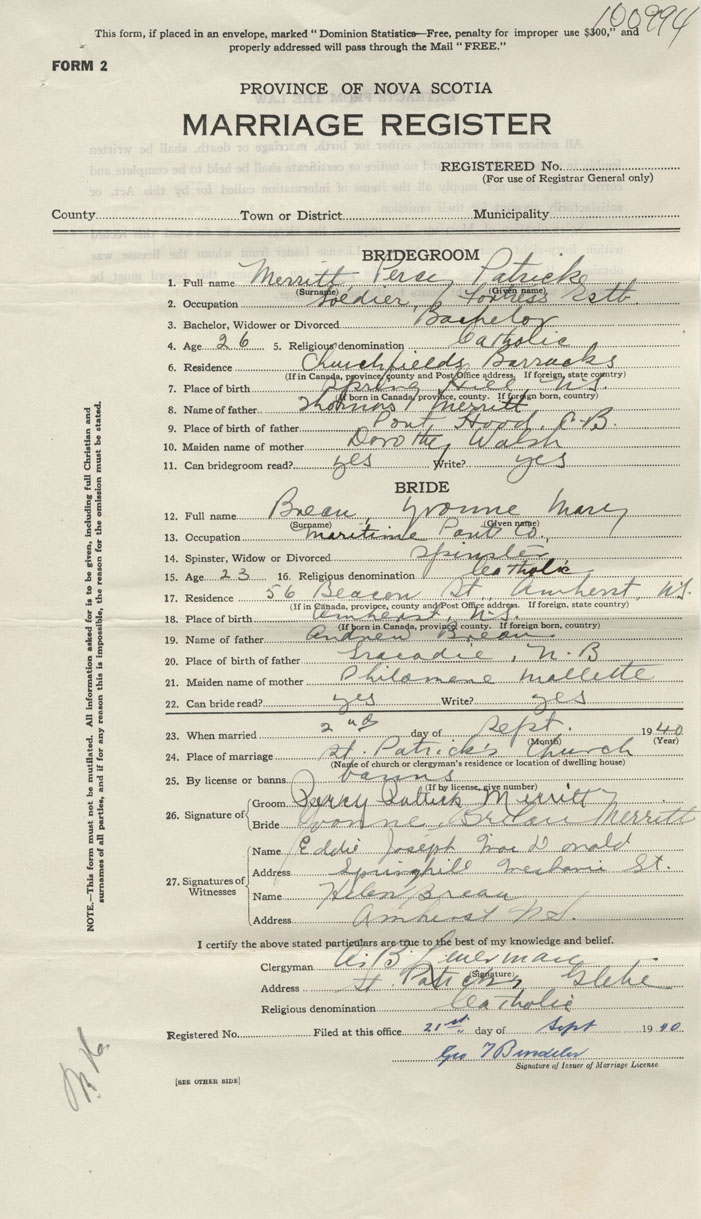 100994
This form, if placed in an envelope, marked "Dominion Statistics—Free, penalty for improper use $300," and
properly addressed will pass through the Mail "FREE."
FORM 2
PROVINCE OF NOVA SCOTIA
MARRIAGE REGISTER
REGISTERED No.
(For use of Registrar General only)
County Town or District Municipality
BRIDEGROOM
1. Full name Merritt, Percy Patrick
(Surname) (Given name)
2. Occupation Soldier, Fortress Estb.
3. Bachelor, Widower or Divorced Bachelor
4. Age 26 5. Religious denomination Catholic
6. Residence Churchfields Barracks
(If in Canada, province, county and Post Office address. If foreign, state country)
7. Place of birth Spring Hill, N.S.
(If born in Canada, province, county. If foreign born, country)
8. Name of father Thomas Merritt
9. Place of birth of father Port Hood, C.B.
10. Maiden name of mother Dorothy Walsh
11. Can bridegroom read? yes Write? yes
BRIDE
12. Full name Breau, Yvonne Mary
(Surname) (Given name)
13. Occupation Maritime Pant Co.,
14. Spinster, Widow or Divorced Spinster
15. Age 23 16. Religious denomination Catholic
17. Residence 56 Beacon St., Amherst, N.S.
(If in Canada, province, county and Post Office address. If foreign, state country)
18. Place of birth Amherst, N.S.
(If born in Canada, province, county. If foreign born, country)
19. Name of father Andrew Breau
20. Place of birth of father Tracadie, N.B
21. Maiden name of mother Philomene Mallette
22. Can bride read? yes Write? yes
23. When married 2nd day of Sept. 1940
(Month) (Year)
24. Place of marriage St. Patrick's Church
(Name of church or clergyman's residence or location of dwelling house)
25. By license or banns banns
(If by license, give number)
26. Signature of Groom Percy Patrick Merritt
Bride Yvonne Merritt
27. Signatures of Witnesses Name Eddie Joseph Mac Donald
Address Springhill Mechanic St.
Name Helen Breau
Address Amherst N.S.
I certify the above stated particulars are true to the best of my knowledge and belief.
Clergyman
(Signature)
Address St. Patrick's Glebe
Religious denomination Catholic
Registered No. Filed at this office 21st day of Sept 1940
Geo
Signature of Issuer of Marriage License.
[SEE OTHER SIDE]
NOTE.—This form must not be mutilated. All information asked for is to be given, including full Christian and
surnames of all parties, and if for any reason this is impossible, the reason for the omission must be stated.